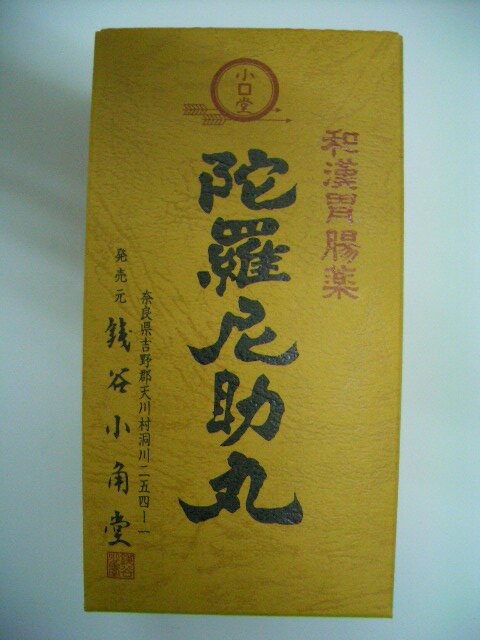 小口堂
和漢胃腸薬
陀羅尼助丸
奈良県吉野郡天川村洞川二五四ー一
発売元 銭谷小角堂